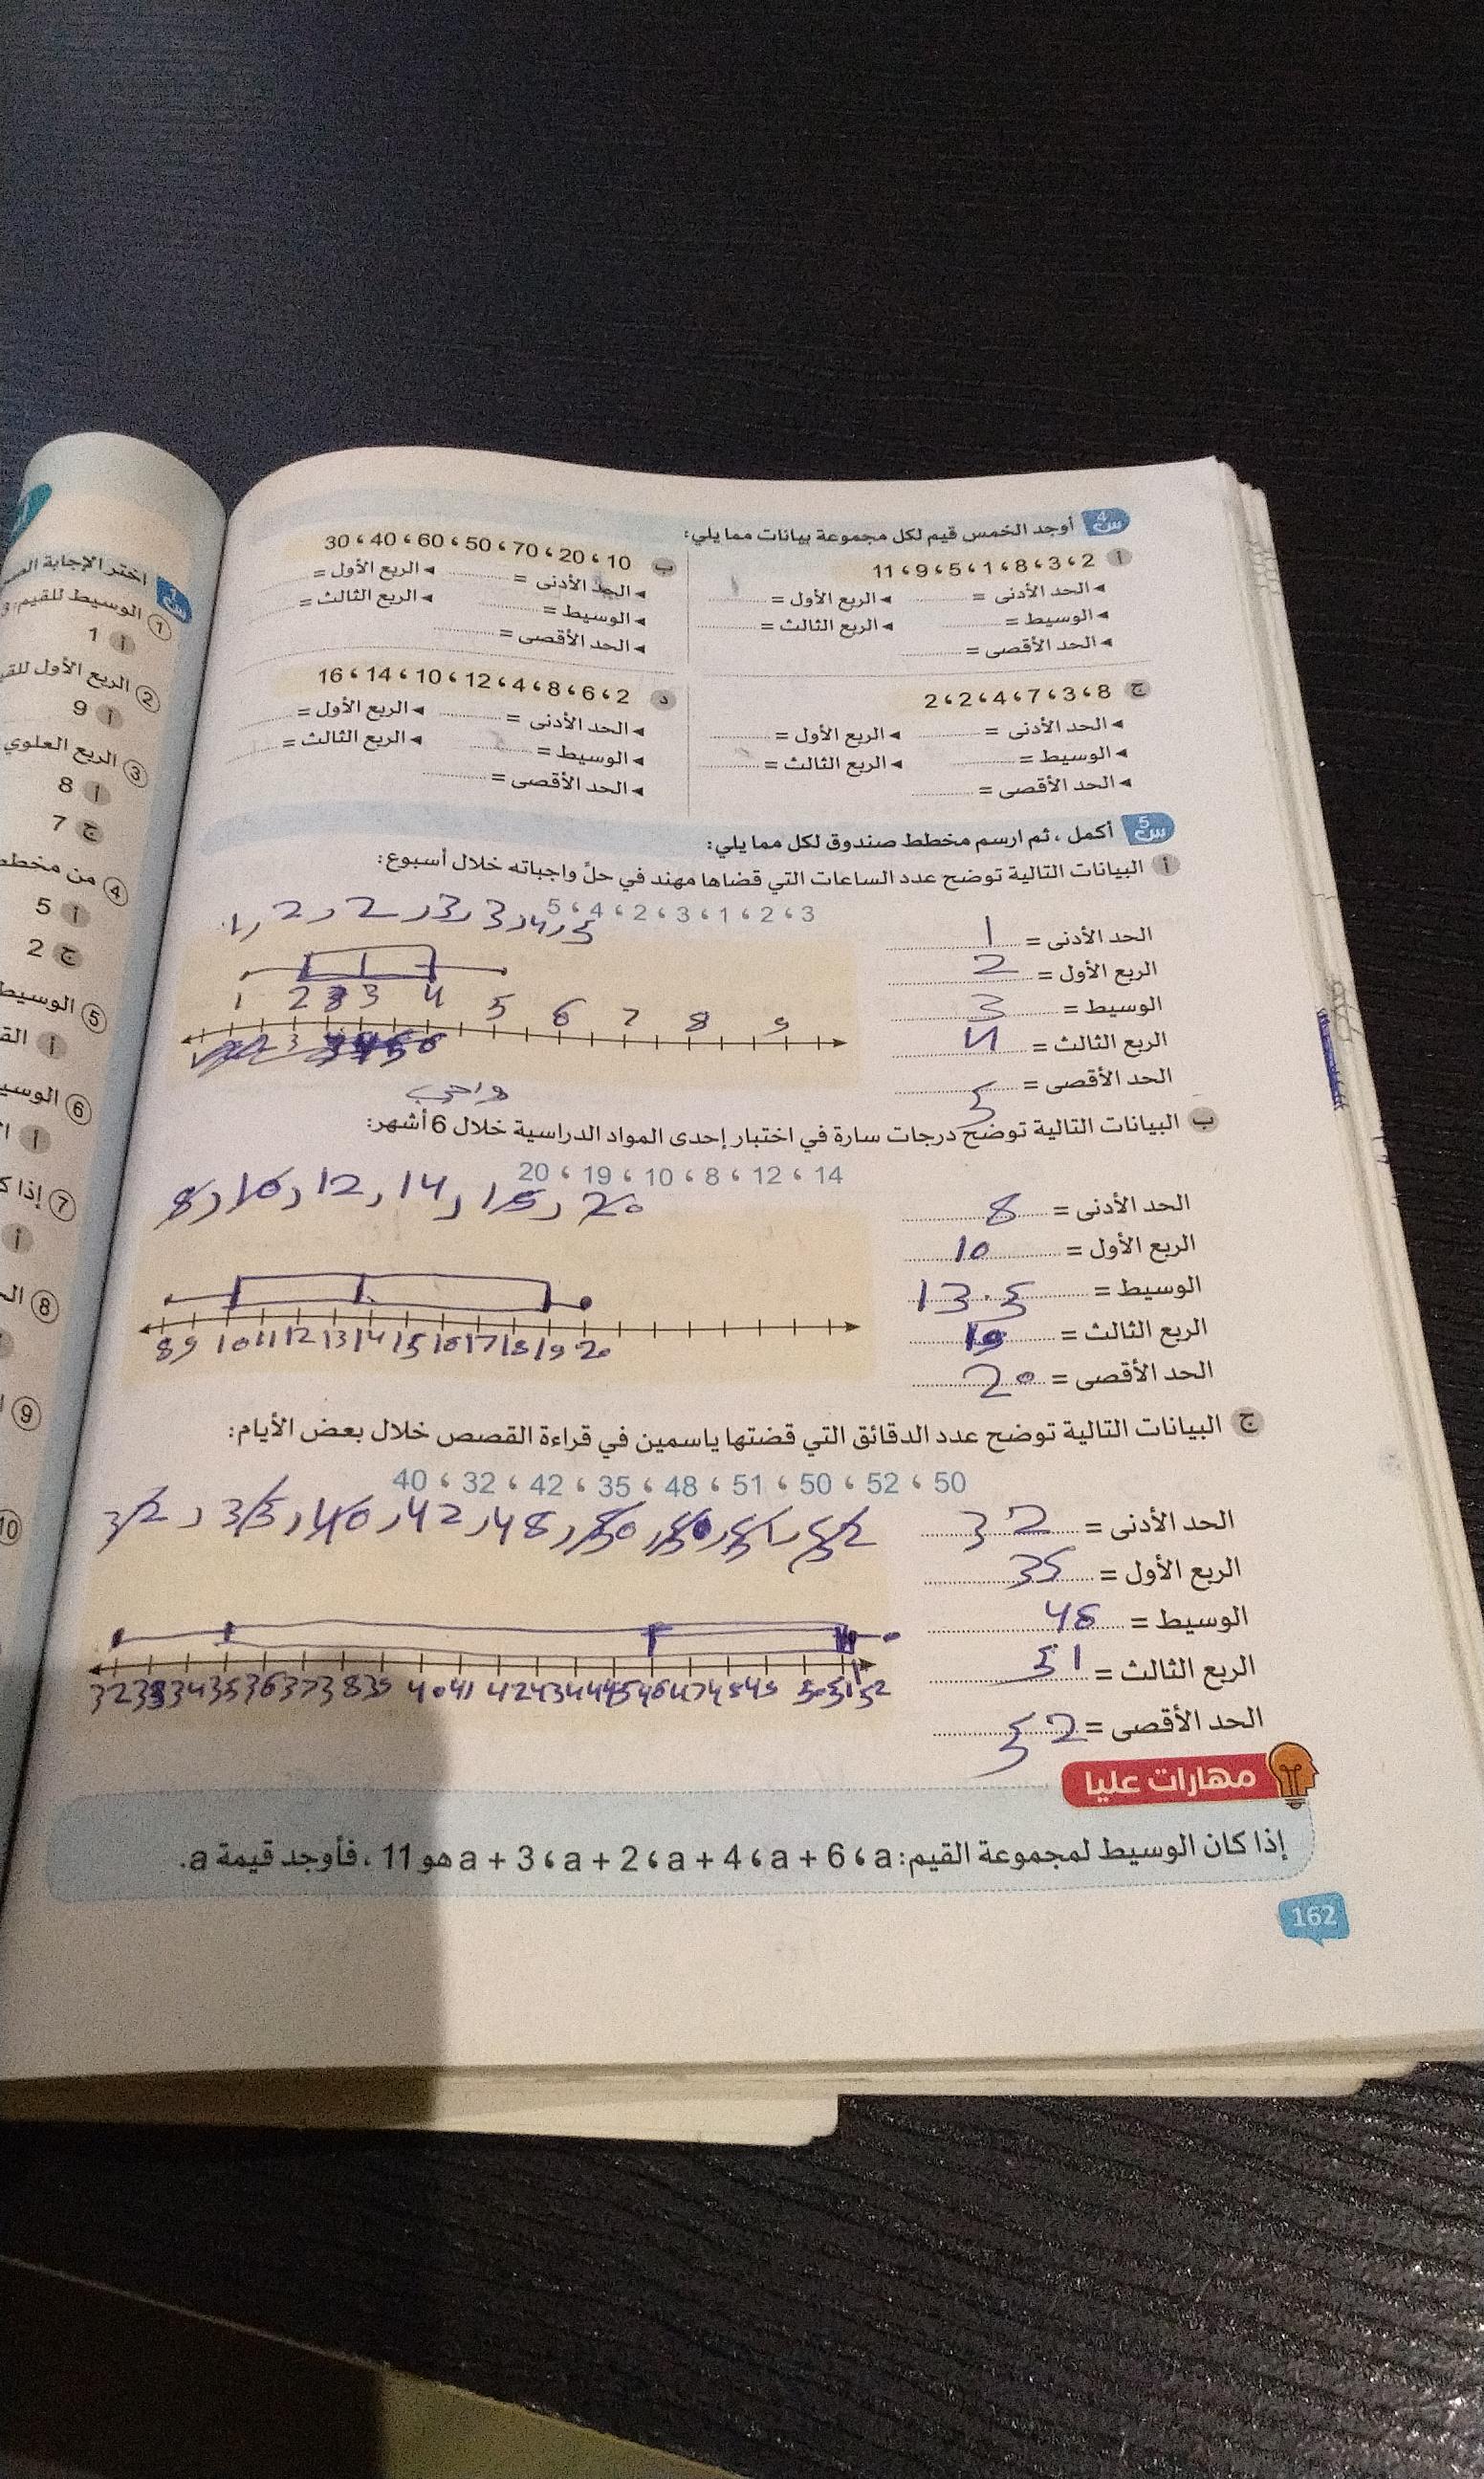 س4 أوجد الخمس قيم لكل مجموعة بيانات مما يلي:
أ 2 ، 3 ، 8 ، 1 ، 5 ، 9 ، 11
◂ الحد الأدنى = ............ ◂ الربع الأول = ............
◂ الوسيط = ............ ◂ الربع الثالث = ............
◂ الحد الأقصى = ............
ب 10 ، 20 ، 70 ، 50 ، 60 ، 40 ، 30
◂ الحد الأدنى = ............ ◂ الربع الأول =
◂ الوسيط = ............ ◂ الربع الثالث =
◂ الحد الأقصى = ............
ج 8 ، 3 ، 7 ، 4 ، 2 ، 2
◂ الحد الأدنى = ............ ◂ الربع الأول = ............
◂ الوسيط = ............ ◂ الربع الثالث = ............
◂ الحد الأقصى = ............
د 2 ، 6 ، 8 ، 4 ، 12 ، 10 ، 14 ، 16
◂ الحد الأدنى = ............ ◂ الربع الأول =
◂ الوسيط = ............ ◂ الربع الثالث =
◂ الحد الأقصى = ............
س5 أكمل ، ثم ارسم مخطط صندوق لكل مما يلي:
أ البيانات التالية توضح عدد الساعات التي قضاها مهند في حل واجباته خلال أسبوع:
3 ، 2 ، 1 ، 3 ، 2 ، 4 ، 5
1, 2, 2, 3, 3, 4, 5
الحد الأدنى = 1
الربع الأول = 2
الوسيط = 3
الربع الثالث = 4
الحد الأقصى = 5
1 2 3 4 5 6 7 8 9
ب البيانات التالية توضح درجات سارة في اختبار إحدى المواد الدراسية خلال 6 أشهر:
14 ، 12 ، 8 ، 10 ، 19 ، 20
8, 10, 12, 14, 19, 20
الحد الأدنى = 8
الربع الأول = 10
الوسيط = 13.5
الربع الثالث = 19
الحد الأقصى = 20
8 9 10 11 12 13 14 15 16 17 18 19 20
ج البيانات التالية توضح عدد الدقائق التي قضتها ياسمين في قراءة القصص خلال بعض الأيام:
50 ، 52 ، 50 ، 51 ، 48 ، 35 ، 42 ، 32 ، 40
32, 35, 40, 42, 48, 50, 50, 51, 52
الحد الأدنى = 32
الربع الأول = 35
الوسيط = 48
الربع الثالث = 51
الحد الأقصى = 52
32 33 34 35 36 37 38 39 40 41 42 43 44 45 46 47 48 49 50 51 52
مهارات عليا
إذا كان الوسيط لمجموعة القيم: a ، a + 6 ، a + 4 ، a + 2 ، a + 3 هو 11 ، فأوجد قيمة a.
162
اختر الإجابة
1 الوسيط للقيم:
أ 1
2 الربع الأول
أ 9
3 الربع العلوي
أ 8
ج 7
4 من
أ 5
ج 2
5
أ
6
أ
7 إذا
أ
8
9
10